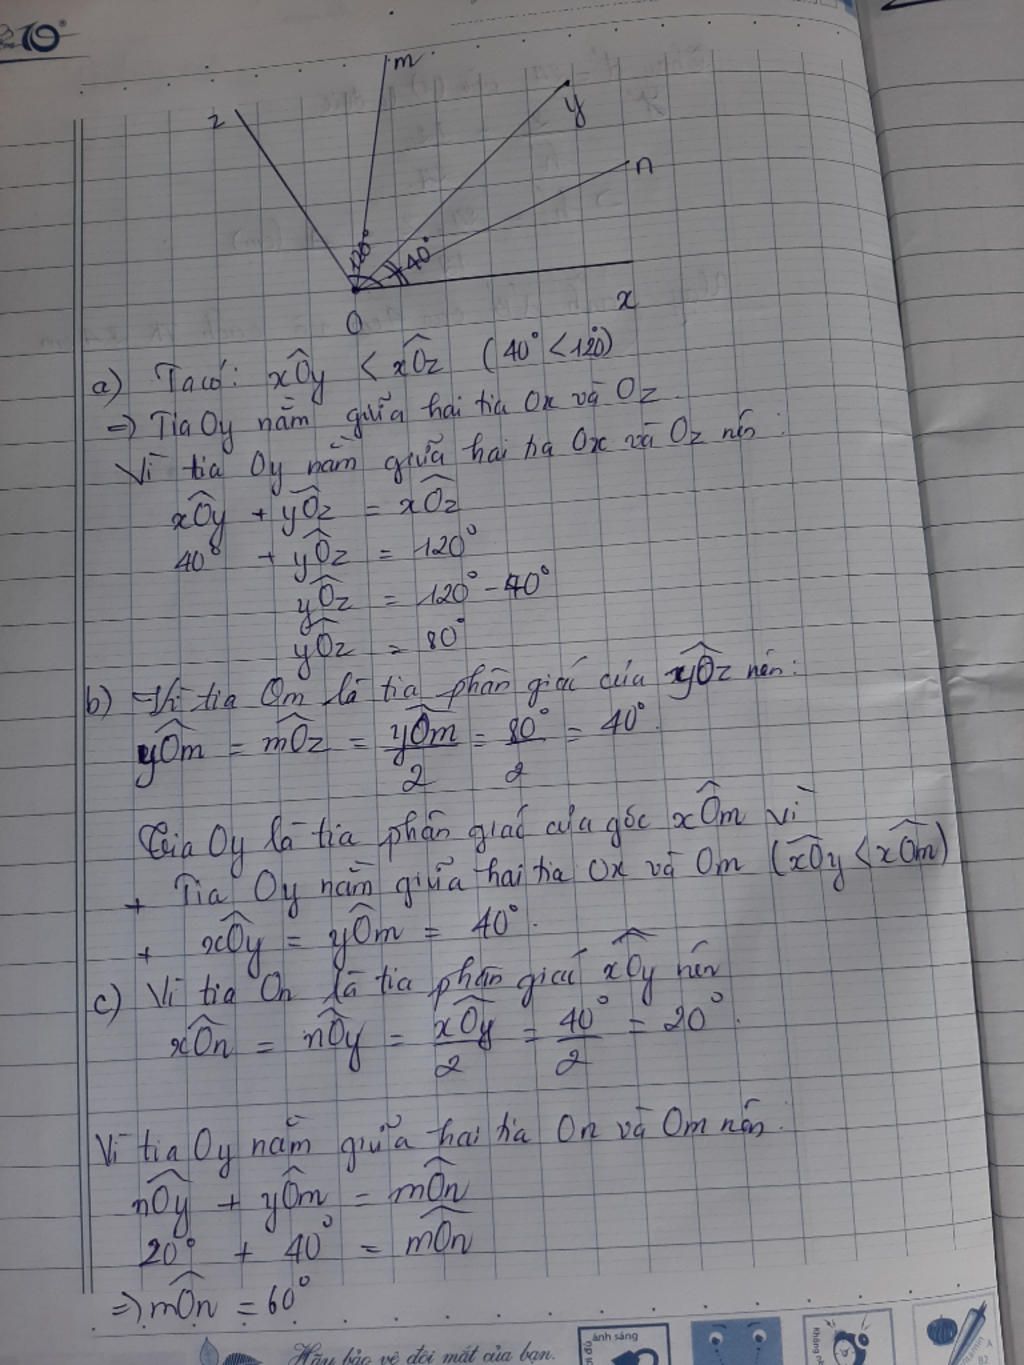 10
m
z
y
n
120°
40°
O
x
a) Ta có: xÔy < xÔz (40° < 120°)
=> Tia Oy nằm giữa hai tia Ox và Oz.
Vì tia Oy nằm giữa hai tia Ox và Oz nên:
xÔy + yÔz = xÔz
40° + yÔz = 120°
yÔz = 120° - 40°
yÔz = 80°
b) Vì tia Om là tia phân giác của yÔz nên:
yÔm = mÔz = yÔm/2 = 80°/2 = 40°.
Tia Oy là tia phân giác của góc xÔm vì
+ Tia Oy nằm giữa hai tia Ox và Om (xÔy < xÔm)
+ xÔy = yÔm = 40°.
c) Vì tia On là tia phân giác xÔy nên
xÔn = nÔy = xÔy/2 = 40°/2 = 20°.
Vì tia Oy nằm giữa hai tia On và Om nên:
nÔy + yÔm = mÔn
20° + 40° = mÔn
=> mÔn = 60°
Hãy bảo vệ đôi mắt của bạn.
ánh sáng